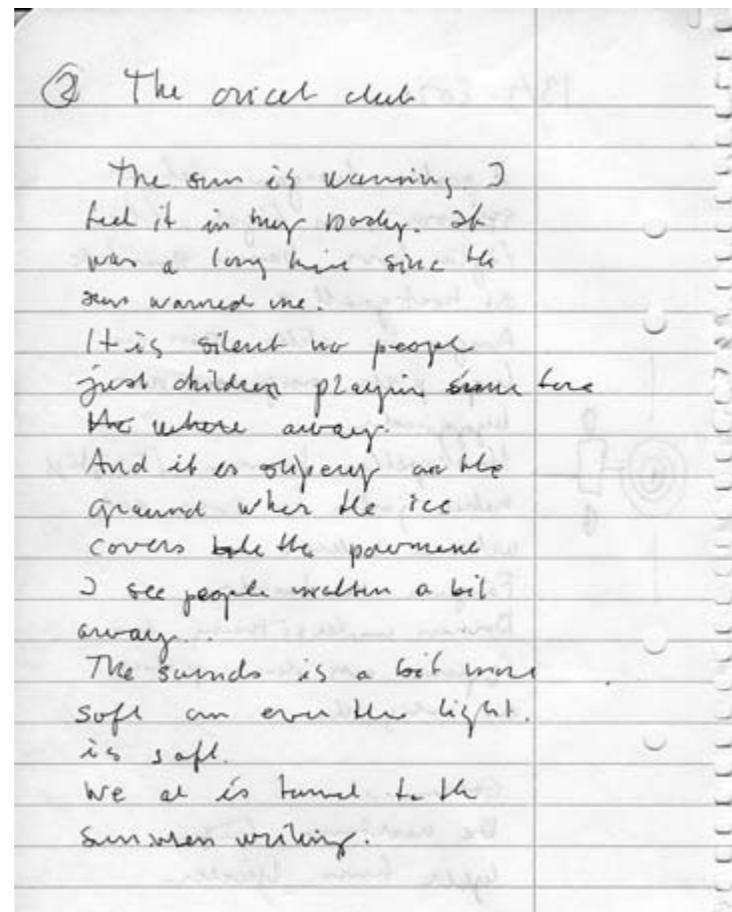 ② The cricet club
The sun is warming. I
feel it in my body. It
was a long time since the
sun warmed me.
It is silent no people
just children playin some
where away.
And it is slipery on the
ground wher the ice
covers the
I see people a bit
away.
The sounds is a bit more
soft the light.
is soft.
We al is turned to the
sun when writing.